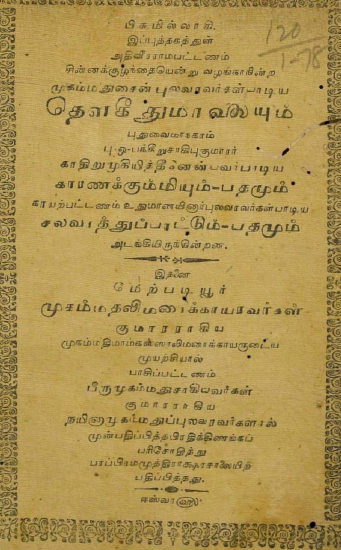 பிசுமில்லாகி.
இப்புத்தகத்துள்
அதிவீரராமபட்டணம்
சின்னக்குழந்தையென்று வழங்காகின்ற
முகம்மதுசைன் புலவரவர்கள்-பாடிய
புதுவைமாநகரம்
பு-ஒ-பக்கிறுசாகிபுகுமாரர்
காதிறுமுகியித்தீனென்பவர்பாடிய
காரணக்கும்மியும்-பதமும்
காயற்பட்டணம் உதுமானயினார்புலவரவர்கள்பாடிய
சலவாத்துப்பாட்டும்-பதமும்
அடங்கியிருக்கின்றன.
இதனை
மேற்படியூர்
முகம்மதலிமரைக்காயரவர்கள்
குமாரராகிய
முகம்மதிமாம்கஸ்ஸாலிமரைக்காயருடைய
முயற்சியால்
பாசிப்பட்டணம்
பீருமுகம்மதுசாகிபவர்கள்
குமாரராகிய
நயினாமுகம்மதுப்புலவரவர்களால்
முன்பதிப்பித்தபிரதிக்கிணங்கப்
பரிசோதித்து
பரப்பிரமமுத்திராக்ஷரசாலையிற்
பதிப்பித்தது.
120
1-78